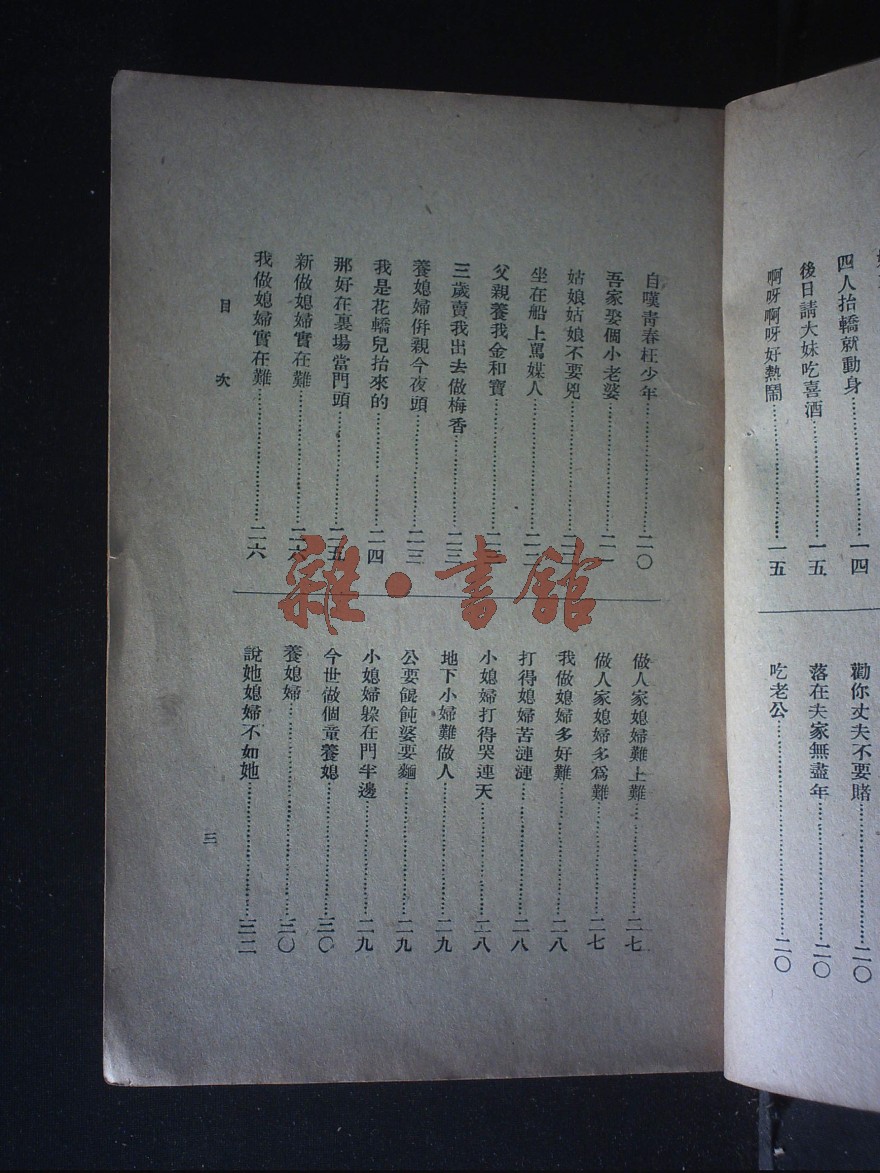 四人抬轎就動身……一四
後日請大妹吃喜酒……一五
啊呀啊呀好熱鬧……一五
勸你丈夫不要賭……二〇
落在夫家無盡年……二〇
吃老公……二〇
自嘆青春枉少年……二〇
吾家娶個小老婆……二一
姑娘姑娘不要兇……二二
坐在船上駡媒人……二二
父親養我金和寶
三歲賣我出去做梅香……二三
養媳婦併親今夜頭……二三
我是花轎兒抬來的……二四
那好在裏場當門頭……二五
新做媳婦實在難……二六
我做媳婦實在難……二六
做人家媳婦難上難……二七
做人家媳婦多爲難……二七
我做媳婦多好難……二八
打得媳婦苦漣漣……二八
小媳婦打得哭連天……二八
地下小婦難做人……二九
公要餛飩婆要麵……二九
小媳婦躲在門半邊……二九
今世做個童養媳……三〇
養媳婦……三〇
說她媳婦不如她……三二
目次
三
雜·書館